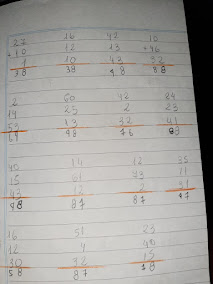 27 16 42 10
+10 12 13 +46
1 10 43 32
38 38 98 88
2 60 42 84
14 23 2 23
53 13 32 41
69 98 76 89
40 14 12 35
15 61 73 11
43 12 2 41
98 87 87 87
16 51 23
12 4 49
30 32 15
58 87 18